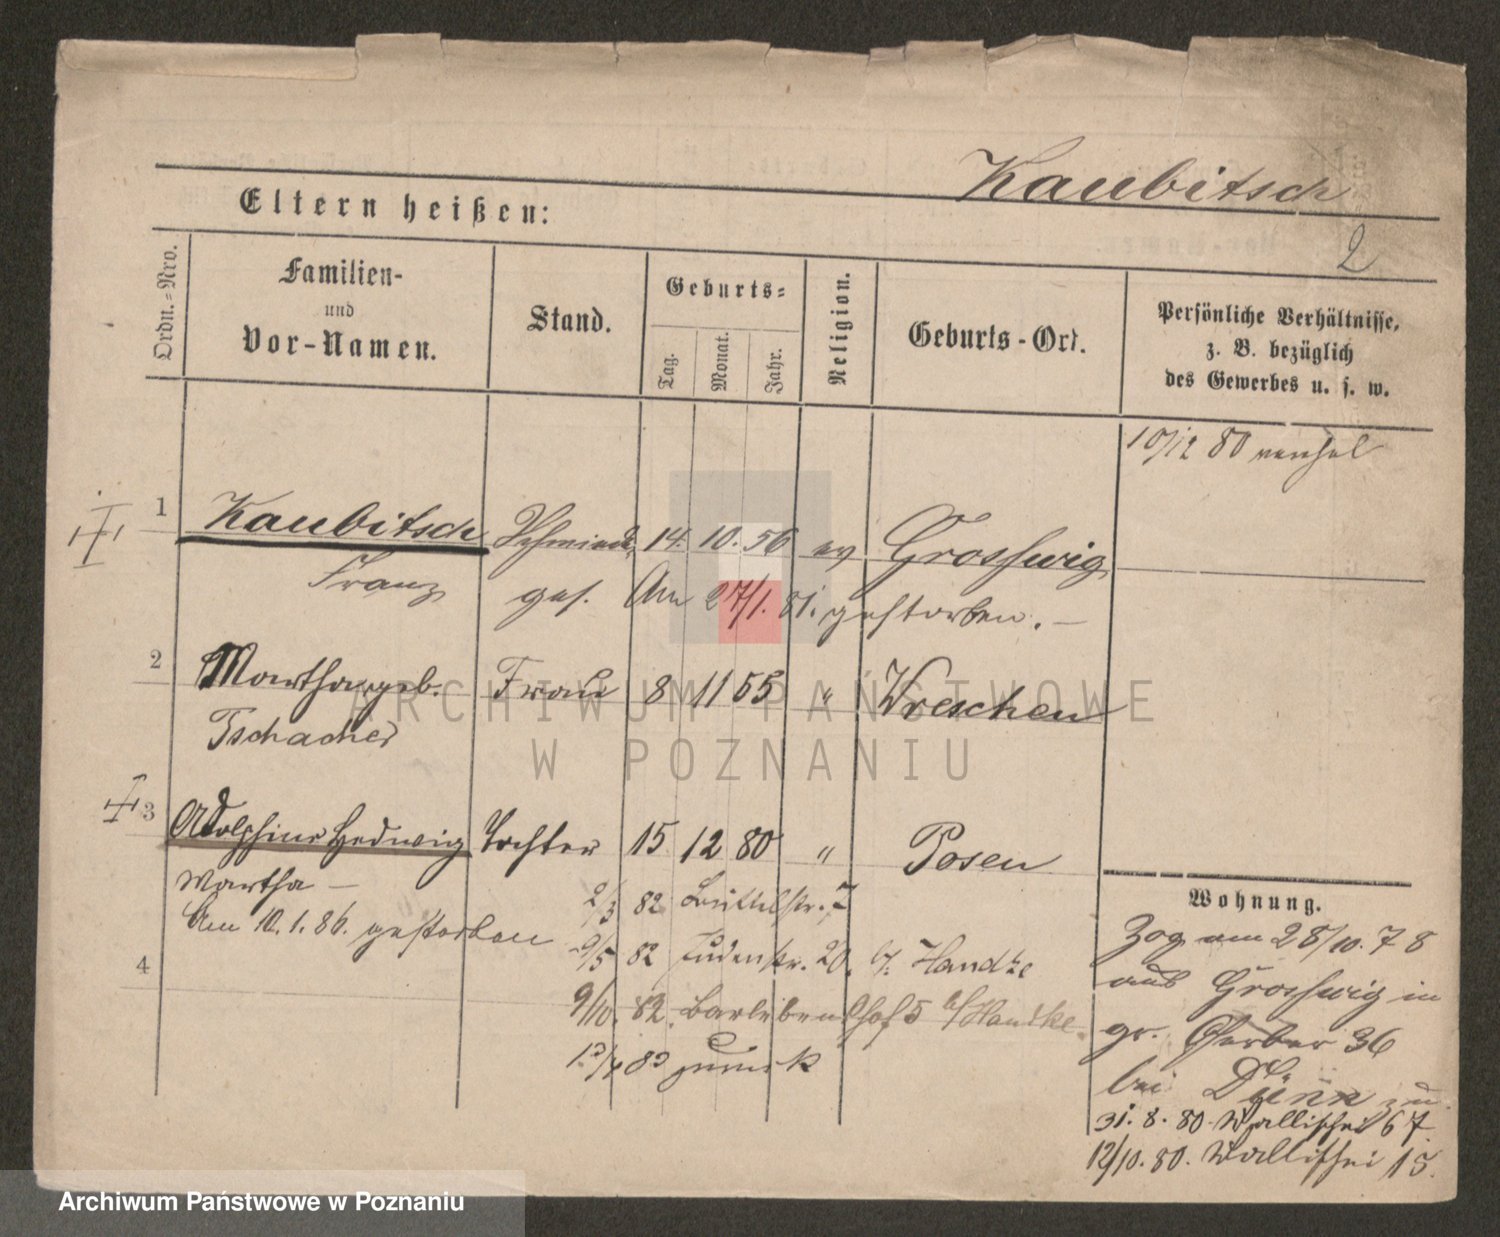 Kaubitsch
Eltern heißen:
2
Ordn.=Nro.
Familien-
und
Vor-Namen.
Stand.
Geburts=
Tag.
Monat.
Jahr.
Religion.
Geburts-Ort.
Persönliche Verhältnisse,
z. B. bezüglich
des Gewerbes u. s. w.
10/12 80
1 Kaubitsch Schmied 14. 10. 56 ev Grosswig
Franz ges. Am 27/1. 81. gestorben. —
2 Martha geb. Frau 8 11 55 " Wreschen
Tschacher
3 Adolphine Hedwig Tochter 15 12 80 " Posen
Martha —
Am 10. 1. 86. gestorben
2/3 82 Büttelstr. 7
9/5 82 Judenstr. 20. b/ Handke
4
9/10. 82. Barlebenshof 5 b/ Handke.
83 zurück
Wohnung.
Zog am 28/10. 78
aus Grosswig in
gr. Gerber 36
bei Dünn
31. 8. 80. Wallischei 67.
12/10. 80. Wallischei 15.
ARCHIWUM PAŃSTWOWE
W POZNANIU
Archiwum Państwowe w Poznaniu